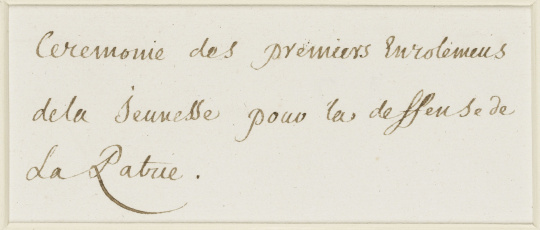 Ceremonie des premiers Enrolemens
de la Jeunesse pour la deffense de
La Patrie.